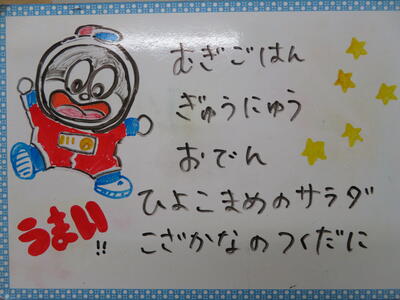 むぎごはん
ぎゅうにゅう
おでん
ひよこまめのサラダ
こざかなのつくだに
うまい!!